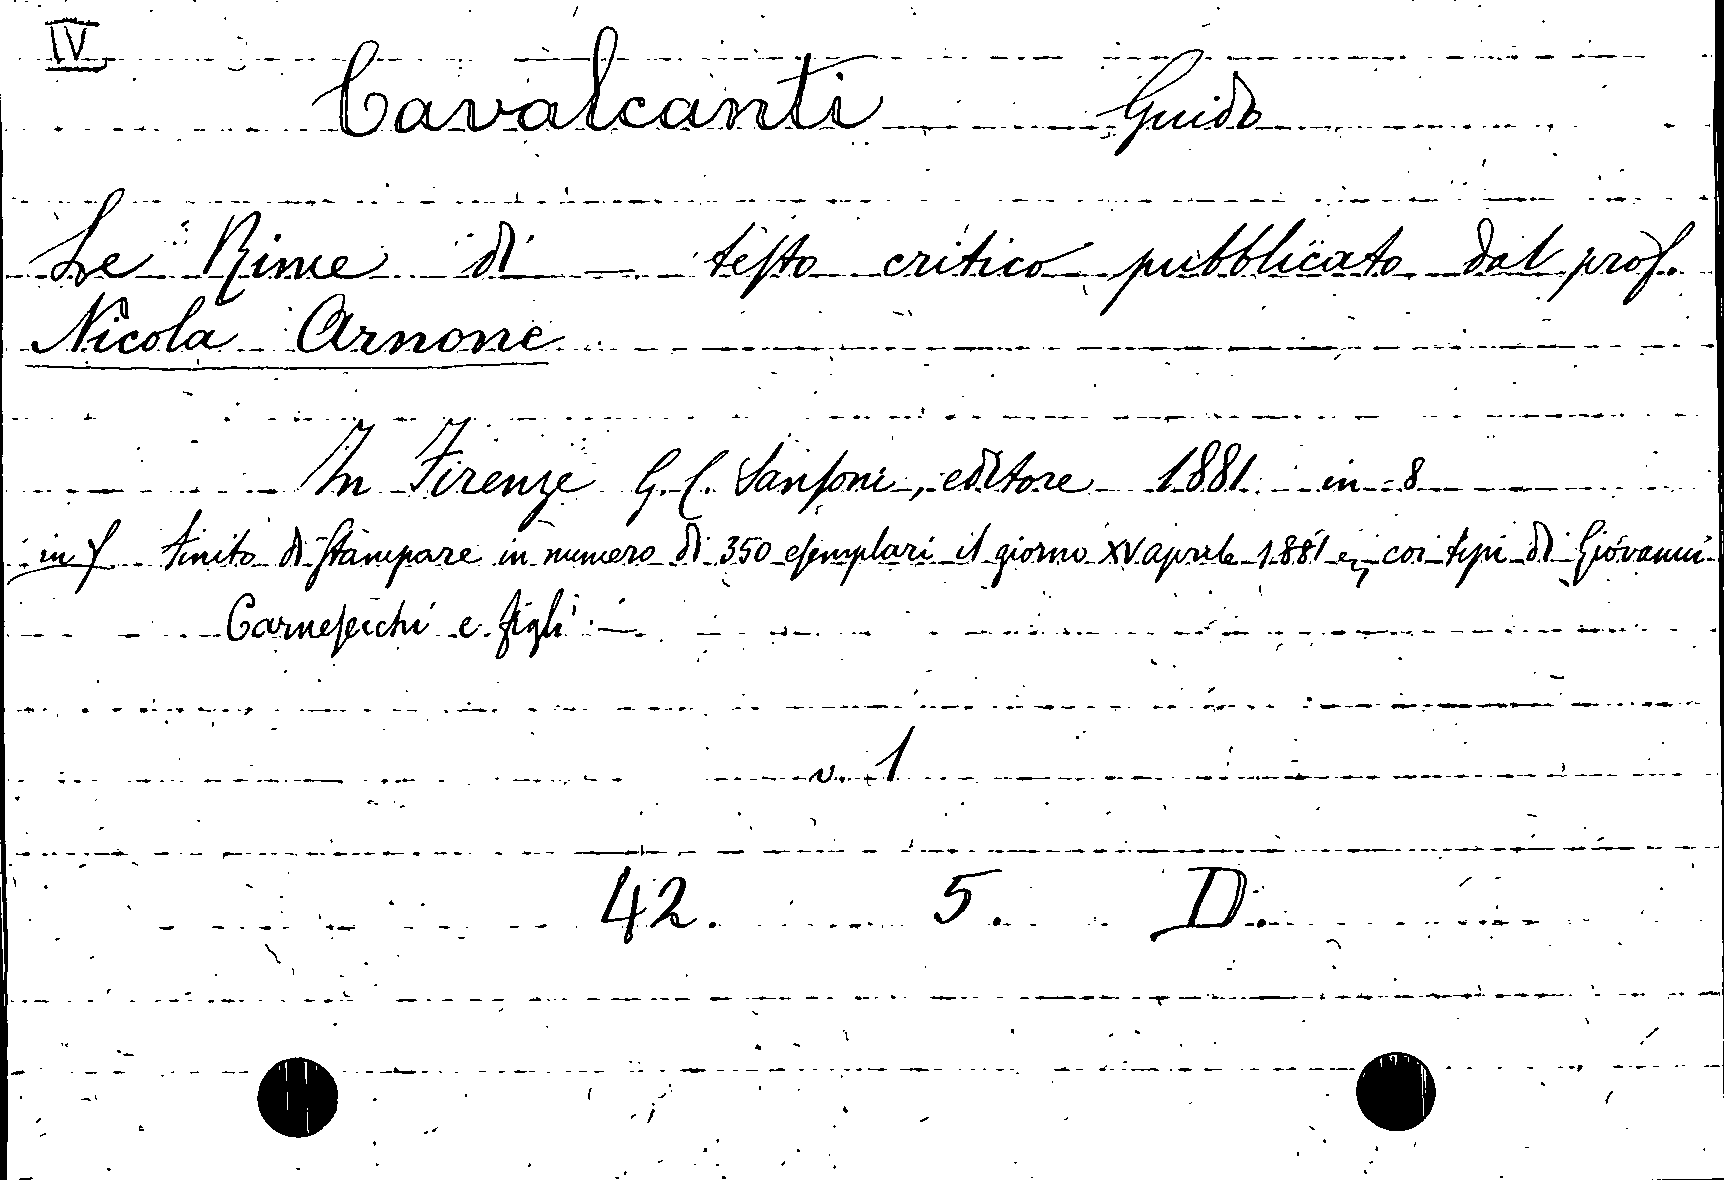 IV
Cavalcanti Guido
Le Rime di — testo critico pubblicato dal prof.
Nicola Arnone
In Firenze G. C. Sansoni, editore 1881 in 8
in f. Finito di stampare in numero di 350 esemplari il giorno XV aprile 1881 coi tipi di Giovanni
Carnesecchi e figli —
v. 1
42. 5. D.